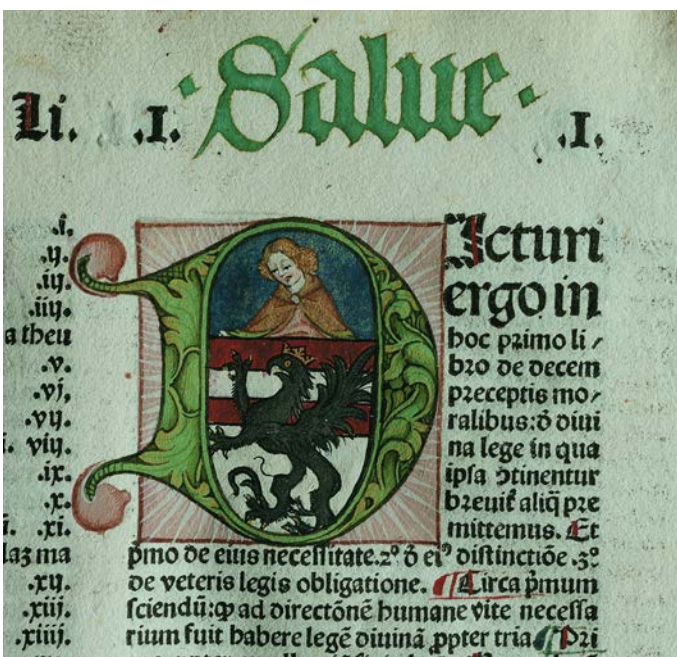 Salue
Li. .I. .I.
.i.
.ij.
.iij.
.iiij.
a theu
.v.
.vj,
.vij.
i. viij.
.ix.
.x.
.xi.
laz ma
.xij.
.xiij.
.xiiij.
DIcturi
ergo in
hoc primo li⸗
bro de decem
preceptis mo⸗
ralibus: đ diui
na lege in qua
ipsa ↄtinentur
breuiť aliq̄ pre
mittemus. Et
p̄mo de eius necessitate. 2º đ eiꝰ distinctiōe .3º
de veteris legis obligatione. ¶ Circa p̄mum
sciendū: ꝙ ad directōnē humane vite necessa
rium fuit habere legē diuinā ꝓpter tria. ¶ Pri